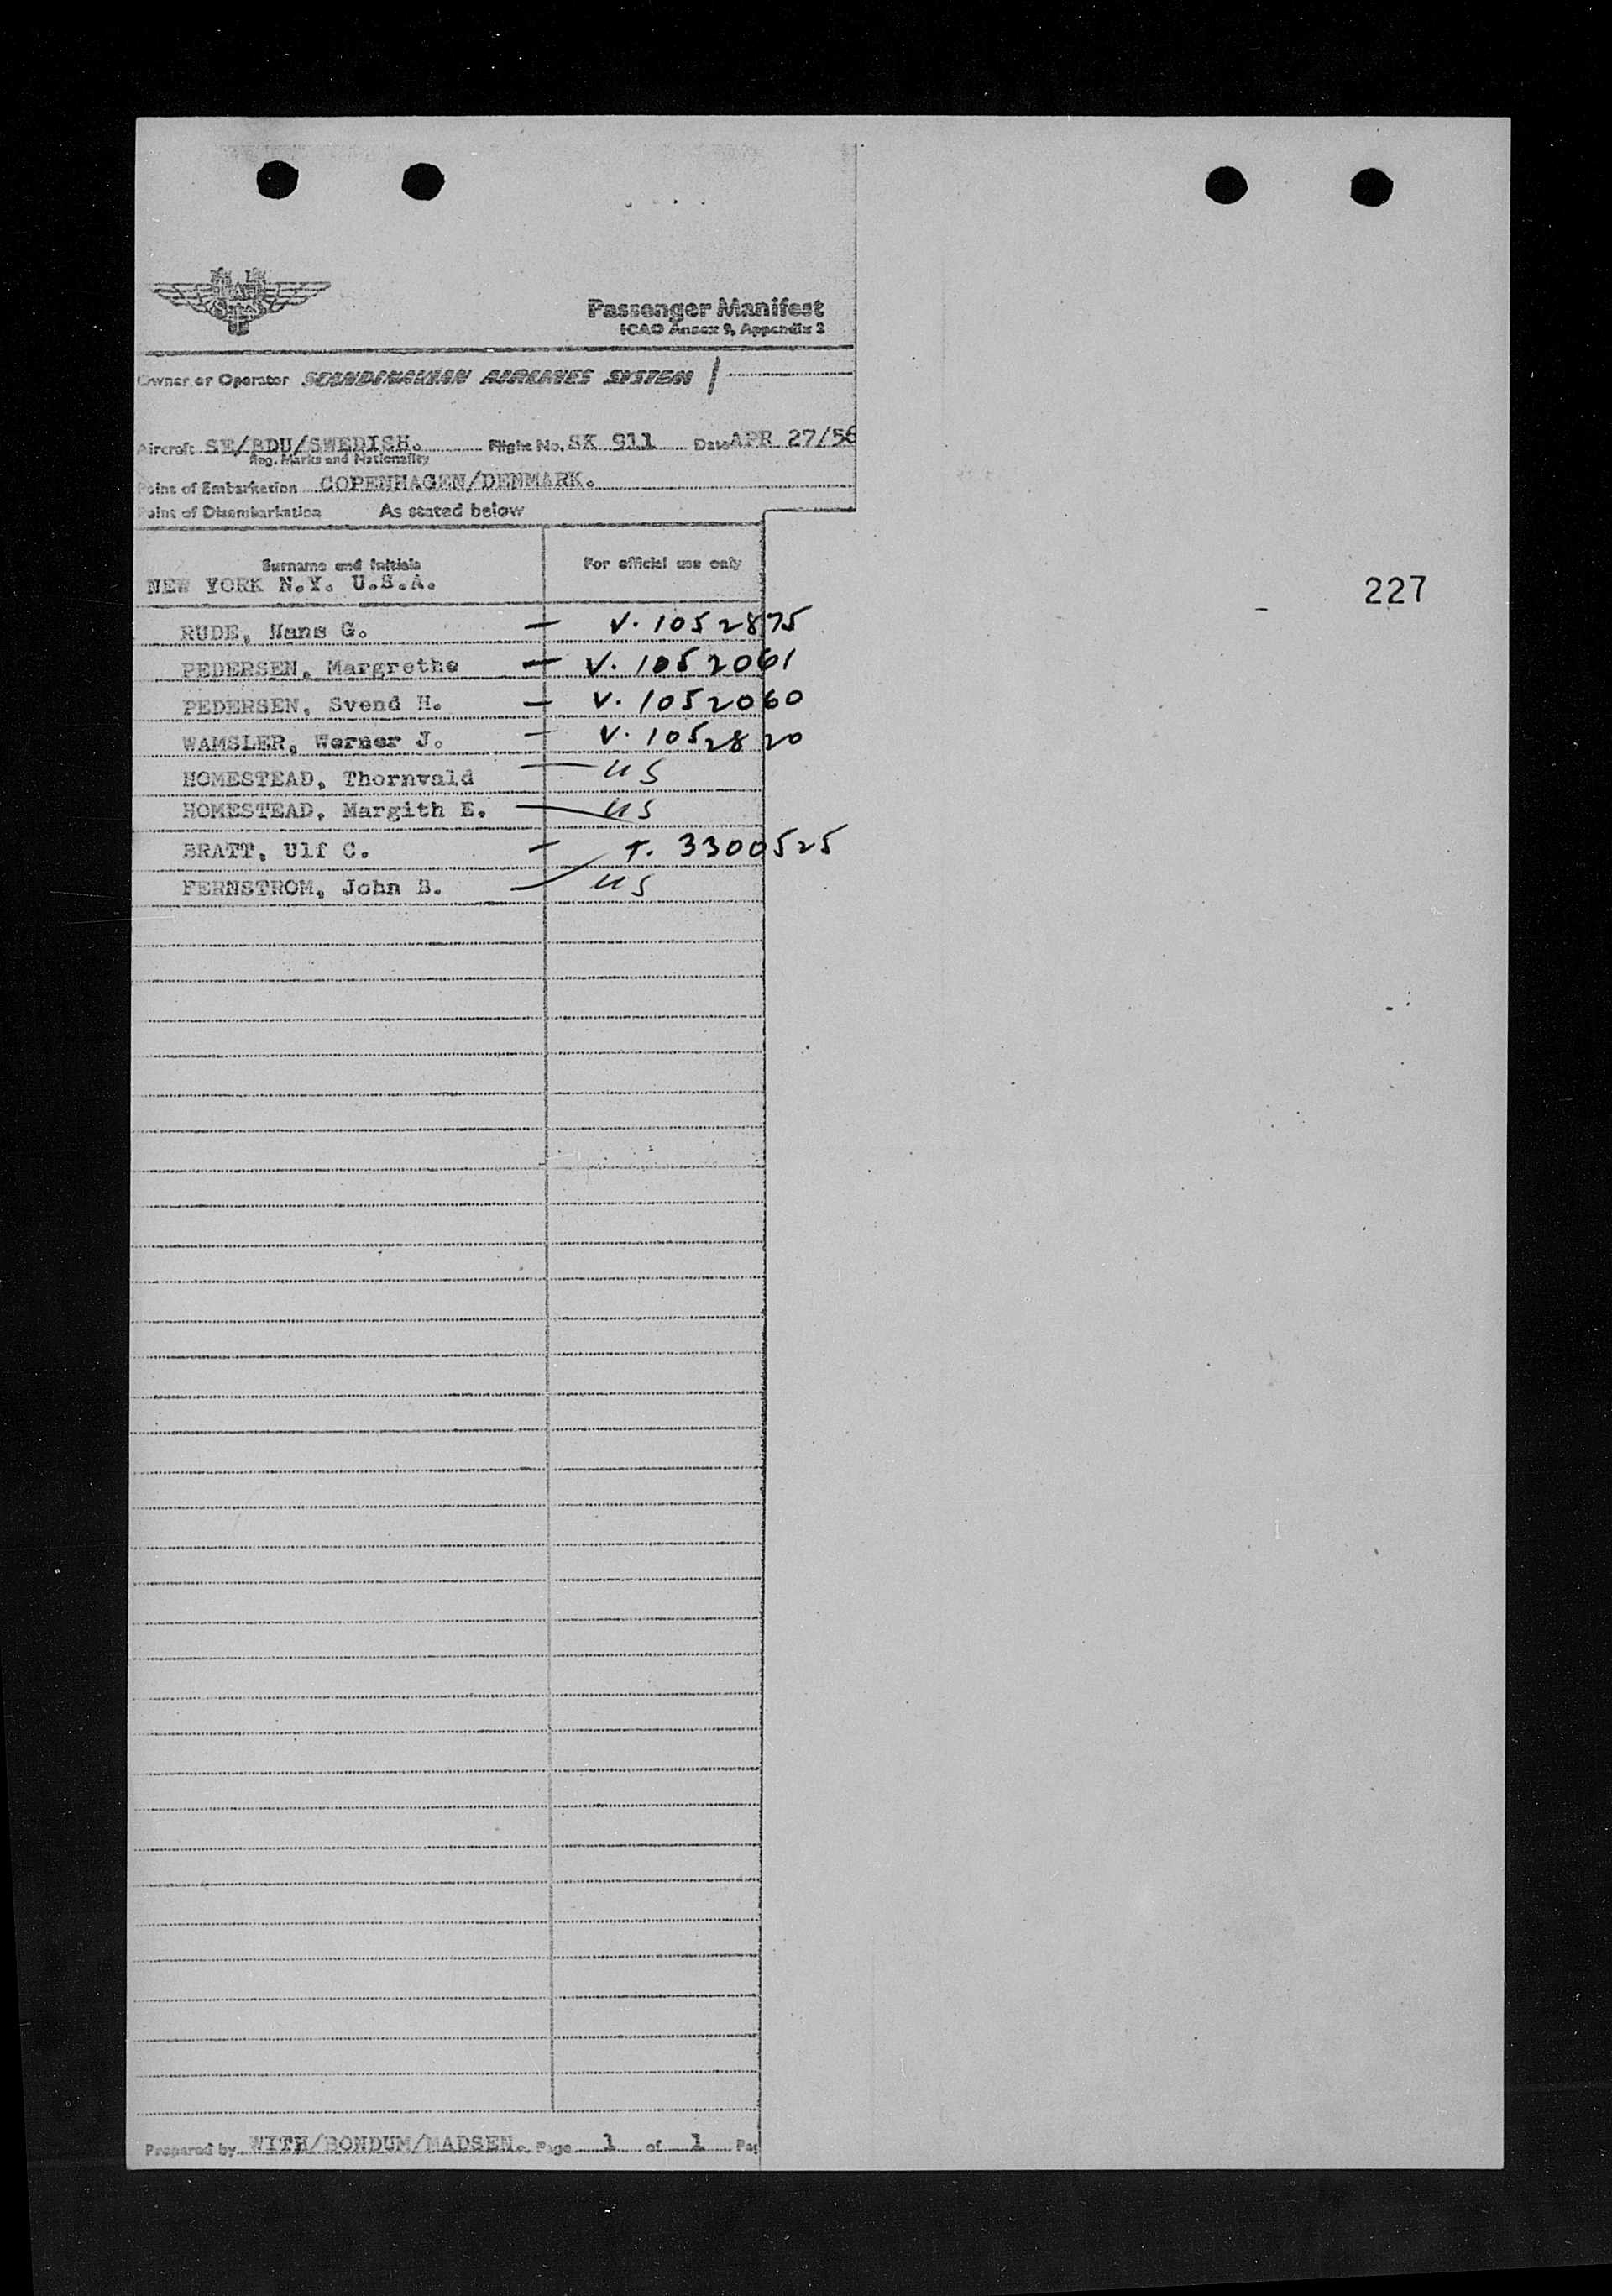 SAS
Passenger Manifest
ICAO Annex 9, Appendix 2
Owner or Operator SCANDINAVIAN AIRLINES SYSTEM
Aircraft SE/BDU/SWEDISH. Flight No. SK 911 Date APR 27/56
Reg. Marks and Nationality
Point of Embarkation COPENHAGEN/DENMARK.
Point of Disembarkation As stated below
Surname and Initials For official use only
NEW YORK N.Y. U.S.A.
227
RUDE, Hans G. — V. 1052875
PEDERSEN, Margrethe — V. 1052061
PEDERSEN, Svend H. — V. 1052060
WAMSLER, Werner J. — V. 1052820
HOMESTEAD, Thornvald — US
HOMESTEAD, Margith E. — US
BRATT, Ulf C. — T. 3300525
FERNSTROM, John B. — US
Prepared by WITH/BONDUM/MADSEN. Page 1 of 1 Pag